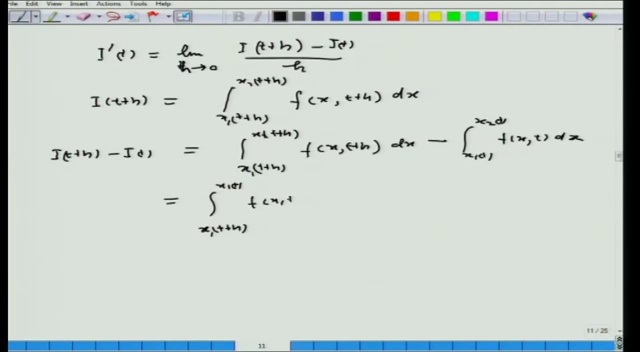 File Edit View Insert Actions Tools Help
I'(t) = lim h→0 I(t+h) − I(t) / h
I(t+h) = ∫_{x₁(t+h)}^{x₂(t+h)} f(x, t+h) dx
I(t+h) − I(t) = ∫_{x₁(t+h)}^{x₂(t+h)} f(x, t+h) dx − ∫_{x₁(t)}^{x₂(t)} f(x, t) dx
= ∫_{x₁(t+h)}^{x₁(t)} f(x, t
11 / 25
11